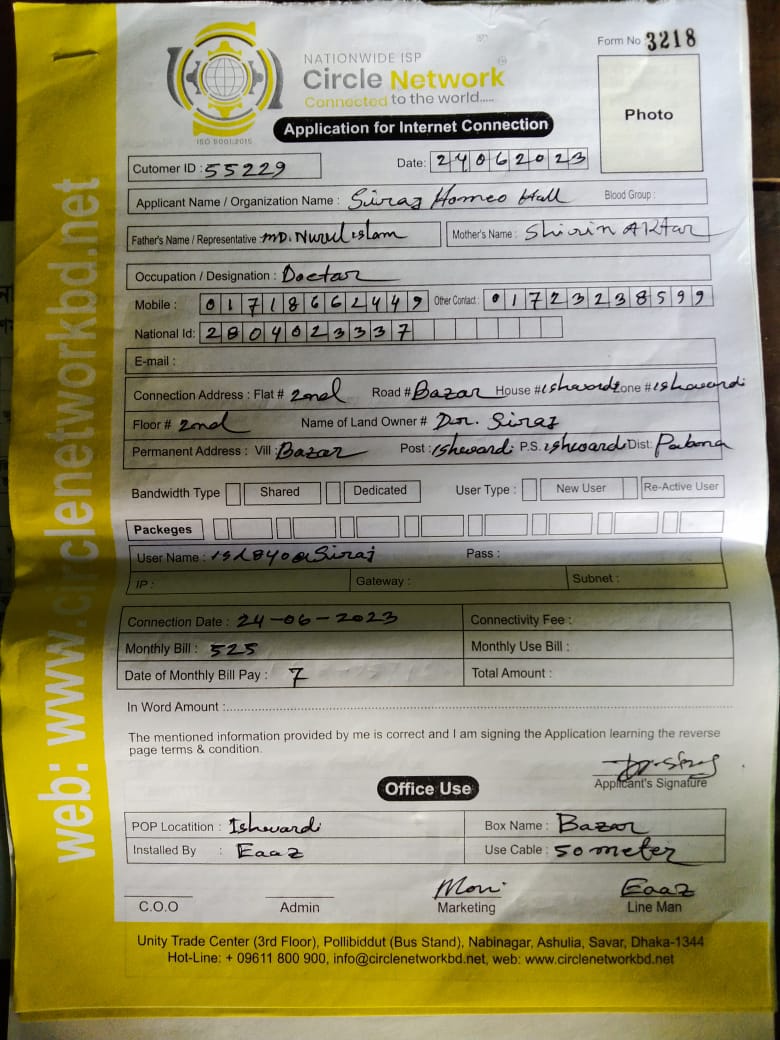 NATIONWIDE ISP
Circle Network
Connected to the world.....
ISO 9001:2015
Form No 3218
Photo
Application for Internet Connection
Cutomer ID : 55229
Date: 24062023
Applicant Name / Organization Name : Siraz Homeo Hall Blood Group :
Father's Name / Representative : MD. Nurul islam Mother's Name : Shirin Aktar
Occupation / Designation : Doctar
Mobile : 01718662449 Other Contact : 01723238599
National Id: 2804023337
E-mail :
Connection Address : Flat # 2nd Road # Bazar House # ishwardi Zone # ishwardi
Floor # 2nd Name of Land Owner # Dr. Siraz
Permanent Address : Vill : Bazar Post : ishwardi P.S. ishwardi Dist: Pabna
Bandwidth Type Shared Dedicated User Type : New User Re-Active User
Packeges
User Name : Pass :
IP : Gateway : Subnet :
Connection Date : 24-06-2023 Connectivity Fee :
Monthly Bill : 525 Monthly Use Bill :
Date of Monthly Bill Pay : 7 Total Amount :
In Word Amount :
The mentioned information provided by me is correct and I am signing the Application learning the reverse
page terms & condition.
Applicant's Signature
Office Use
POP Locatition : Ishwardi Box Name : Bazar
Installed By : Eaaz Use Cable : 50 meter
Moni Eaaz
C.O.O Admin Marketing Line Man
Unity Trade Center (3rd Floor), Pollibiddut (Bus Stand), Nabinagar, Ashulia, Savar, Dhaka-1344
Hot-Line: + 09611 800 900, info@circlenetworkbd.net, web: www.circlenetworkbd.net
web: www.circlenetworkbd.net